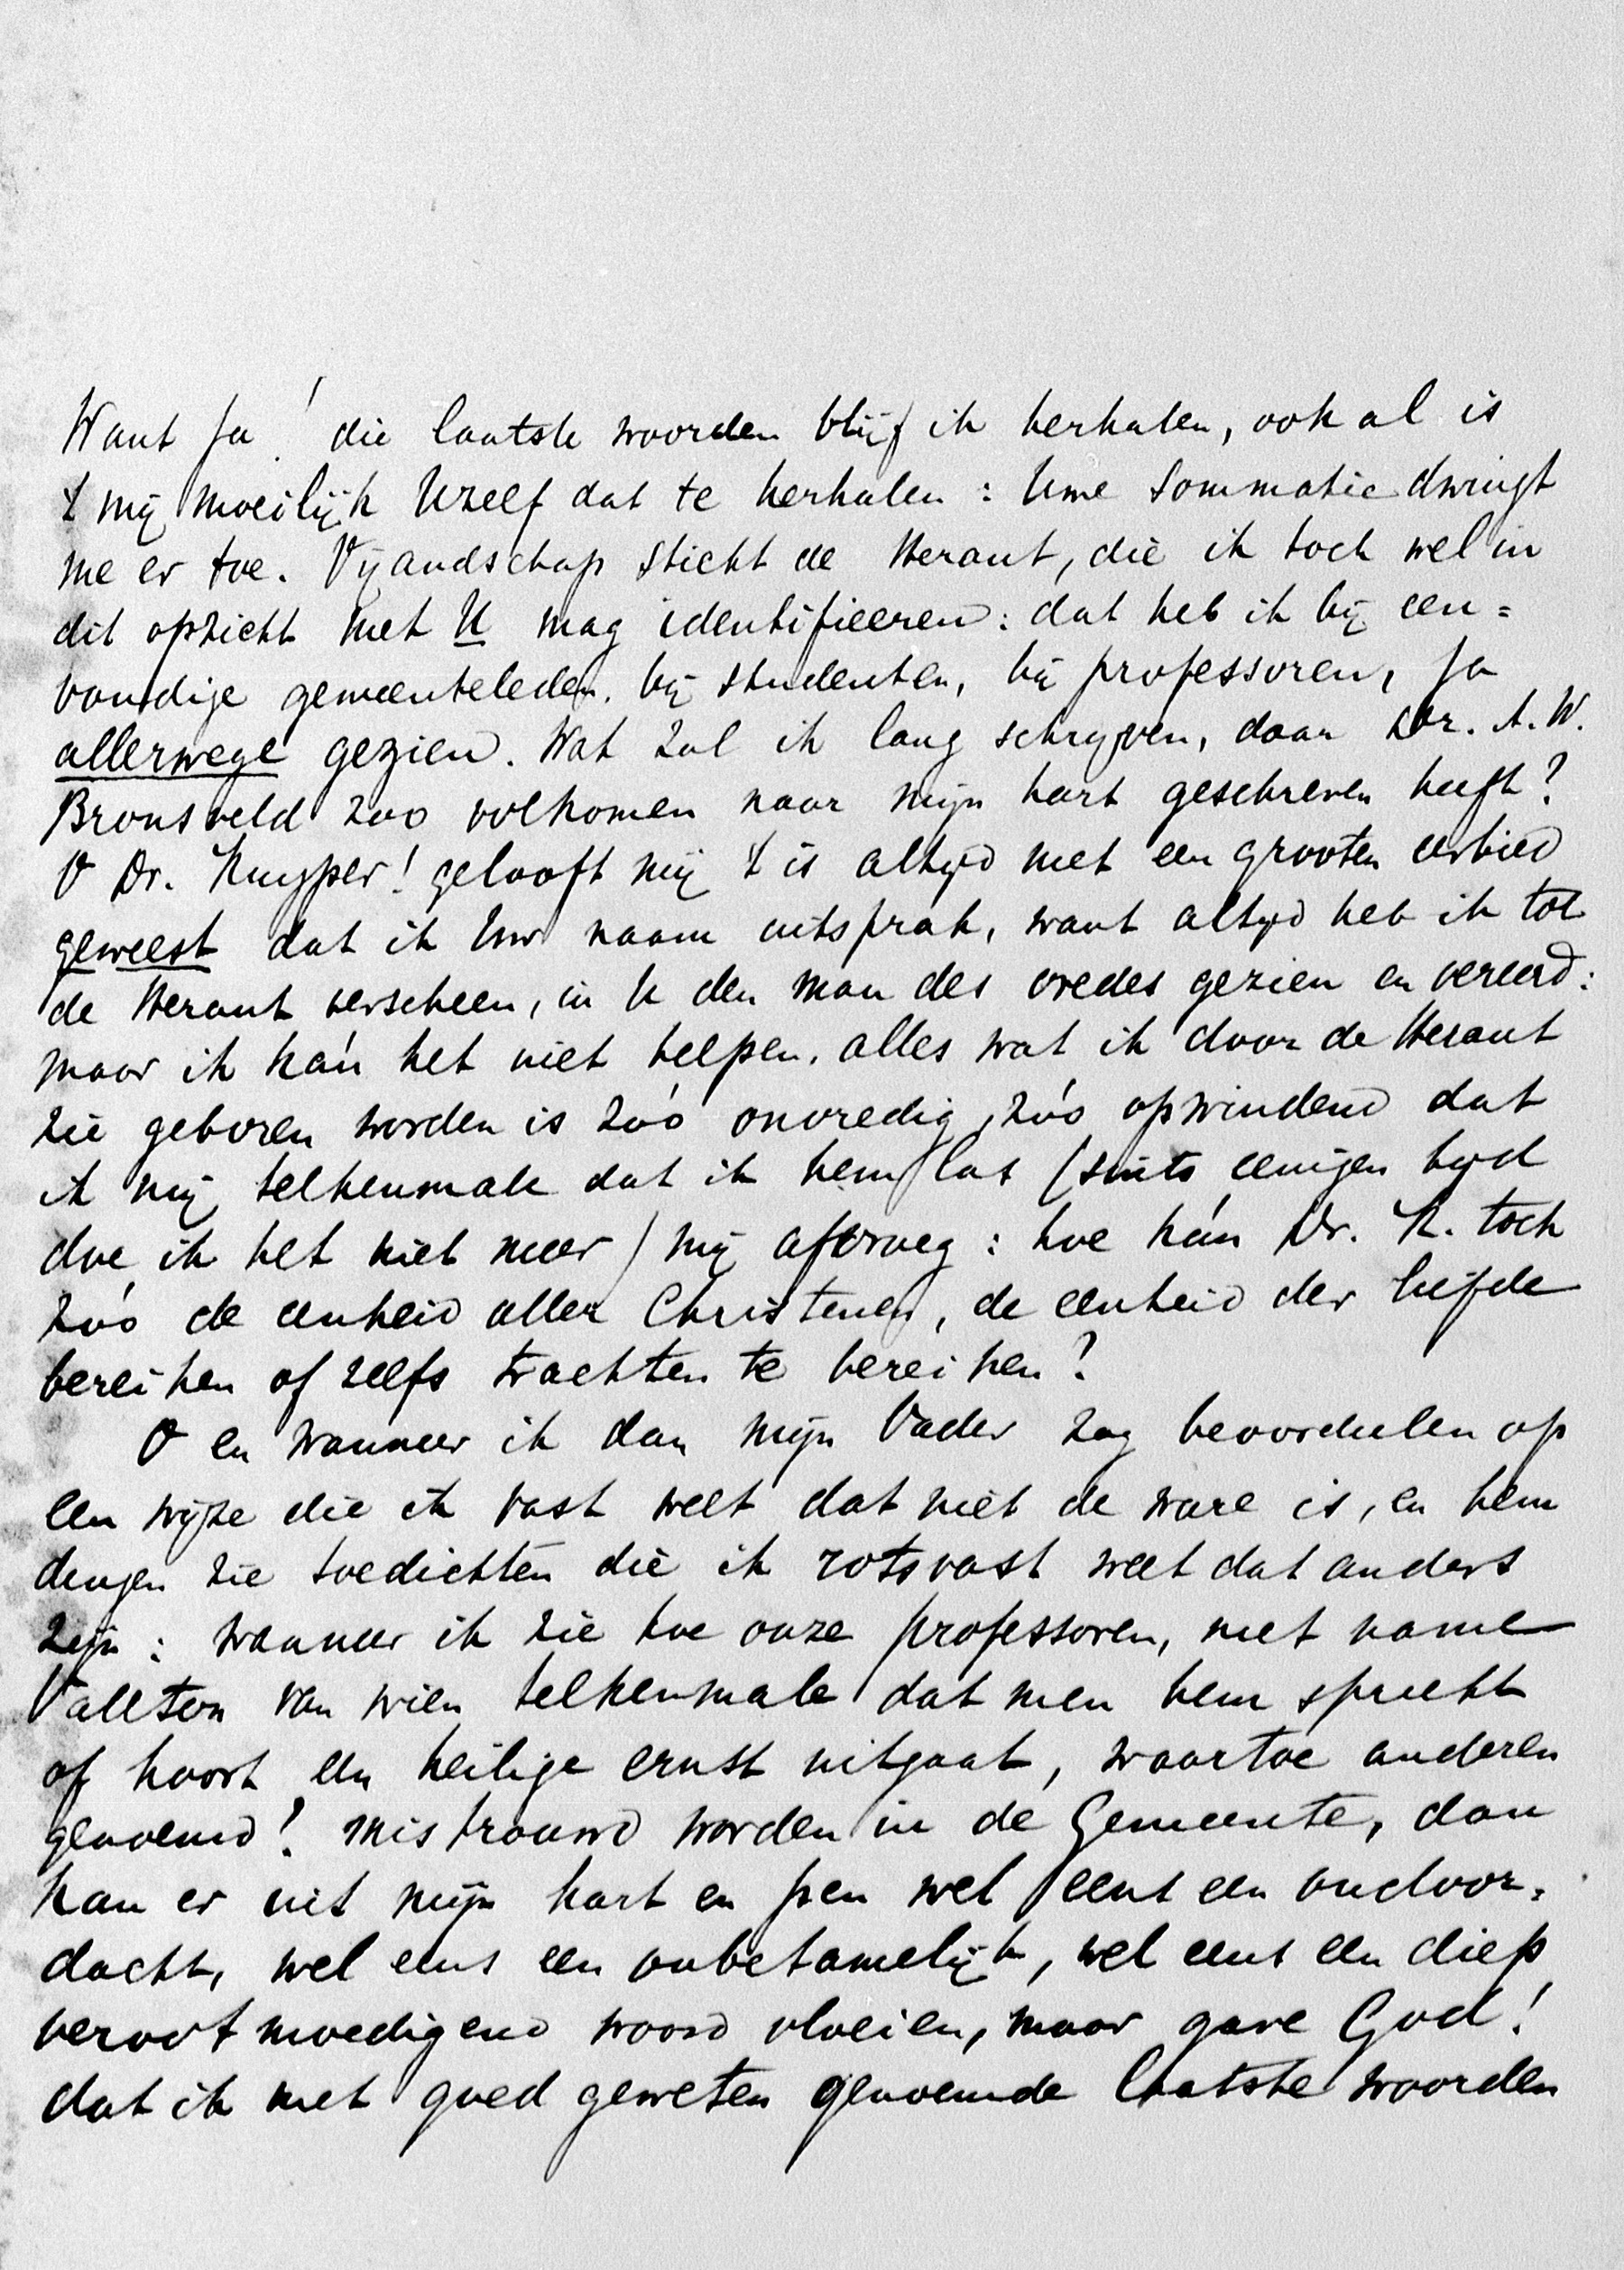 Want ja! die laatste woorden blijf ik herhalen, ook al is
't mij moeilijk Uzelf dat te herhalen: Uwe sommatie dwingt
me er toe. Vijandschap sticht de Heraut, die ik toch wel in
dit opzicht met U mag identifieeren: dat heb ik bij een=
voudige gemeenteleden, bij studenten, bij professoren, ja
allerwege gezien. Wat zal ik lang schrijven, daar Dr. A.W.
Bronsveld zoo volkomen naar mijn hart geschreven heeft?
O Dr. Kuyper! gelooft mij 't is altijd met een grooten eerbied
geweest dat ik Uw naam uitsprak, want altijd heb ik tot
de Heraut verscheen, in U den man des vredes gezien en vereerd:
maar ik kán het niet helpen, alles wat ik door de Heraut
zie geboren worden is zóó onvredig, zóó opwindend dat
ik mij telkenmale dat ik hem las (sints eenigen tijd
doe ik het niet meer) mij afvroeg: hoe kán Dr. K. toch
zóó de eenheid aller Christenen, de eenheid der liefde
bereiken of zelfs trachten te bereiken?
O en wanneer ik dan mijn Vader zag beoordeelen op
een wijze die ik vast weet dat niet de ware is, en hem
dingen zie toedichten die ik rotsvast weet dat anders
zijn: wanneer ik zie hoe onze professoren, met name
Valeton van wien telkenmale dat men hem spreekt
of hoort een heilige ernst uitgaat, waartoe anderen
genoemd? mistrouwd worden in de Gemeente, dan
kan er uit mijn hart en pen wel eens een ondoor=
dacht, wel eens een onbetamelijk, wel eens een diep
verootmoedigend woord vloeien, maar gave God!
dat ik met goed geweten genoemde laatste woorden